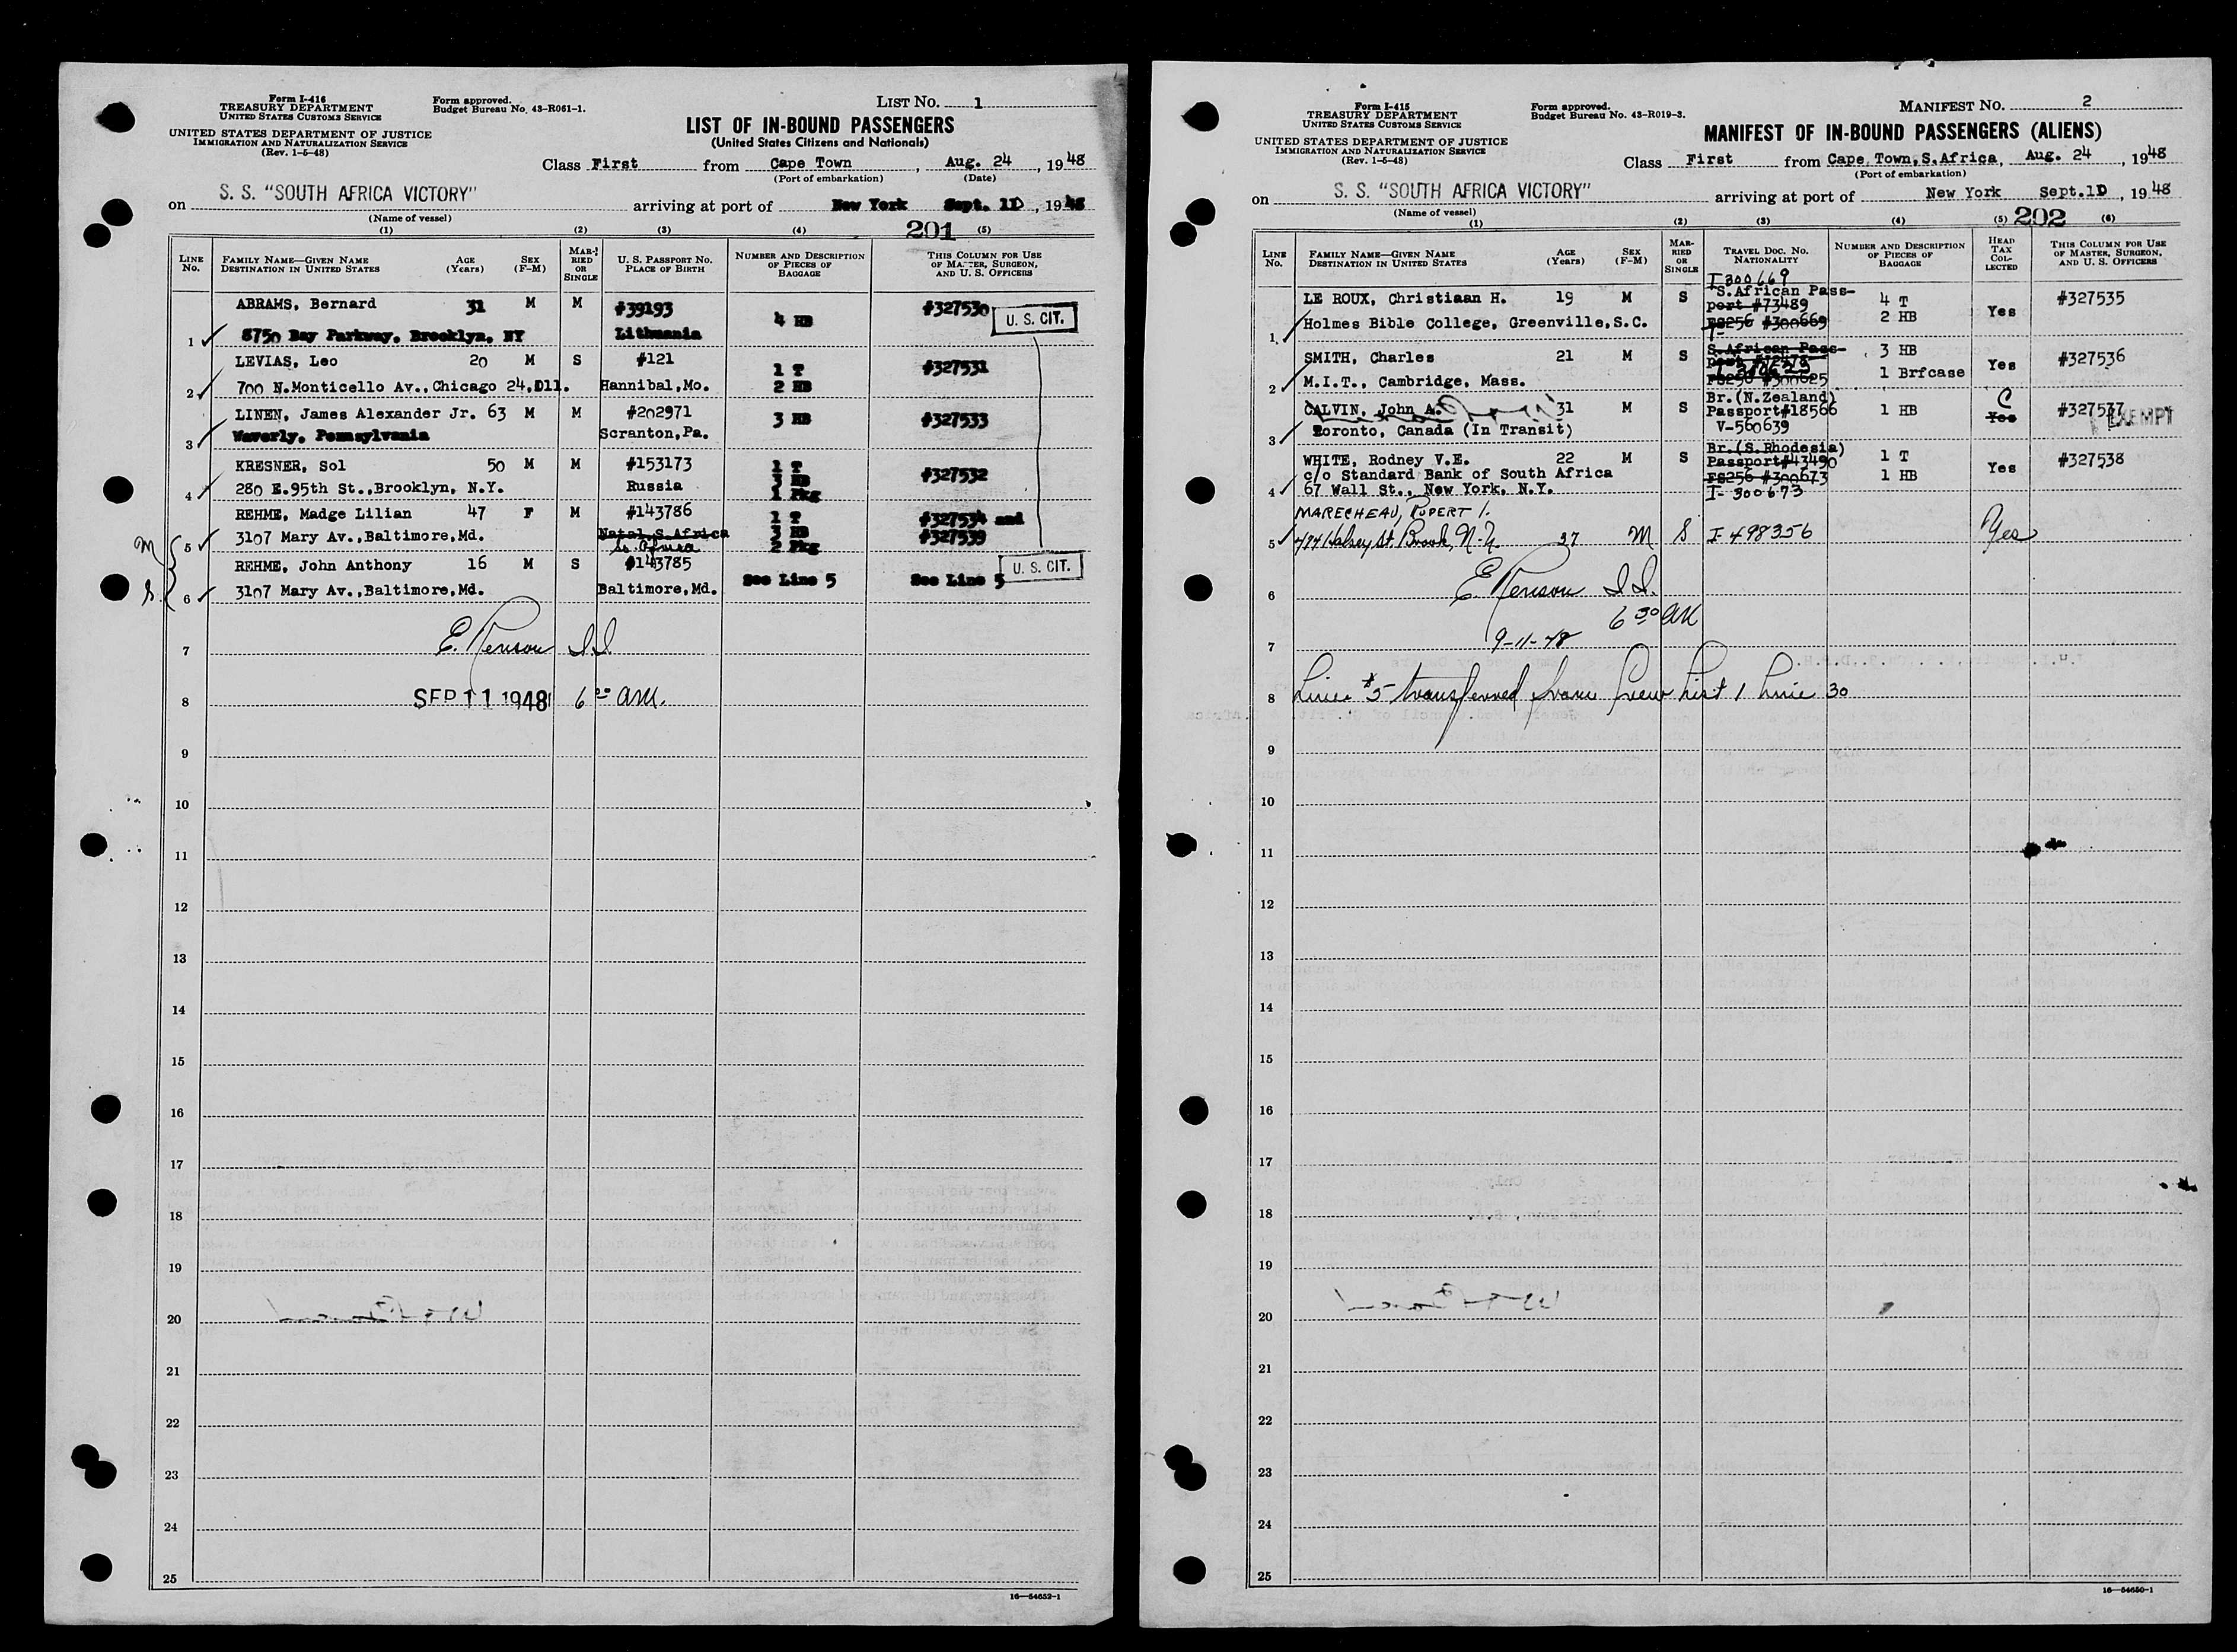 Form I-416
TREASURY DEPARTMENT
UNITED STATES CUSTOMS SERVICE
UNITED STATES DEPARTMENT OF JUSTICE
IMMIGRATION AND NATURALIZATION SERVICE
(Rev. 1-5-48)
Form approved.
Budget Bureau No. 43-R061-1.
LIST NO. 1
LIST OF IN-BOUND PASSENGERS
(United States Citizens and Nationals)
Class First from Cape Town, Aug. 24, 1948
(Port of embarkation) (Date)
on S. S. "SOUTH AFRICA VICTORY" arriving at port of New York Sept. 11, 1948
(Name of vessel)
201
(1) (2) (3) (4) (5)
LINE No. FAMILY NAME—GIVEN NAME DESTINATION IN UNITED STATES AGE (Years) SEX (F-M) MARRIED OR SINGLE U. S. PASSPORT NO. PLACE OF BIRTH NUMBER AND DESCRIPTION OF PIECES OF BAGGAGE THIS COLUMN FOR USE OF MASTER, SURGEON, AND U. S. OFFICERS
ABRAMS, Bernard 31 M M #39193 4 HB #327530 U. S. CIT.
1 8750 Bay Parkway, Brooklyn, NY Lithuania
LEVIAS, Leo 20 M S #121 1 T #327531
2 700 N.Monticello Av.,Chicago 24,Ill. Hannibal,Mo. 2 HB
LINEN, James Alexander Jr. 63 M M #202971 3 HB #327533
3 Waverly, Pennsylvania Scranton,Pa.
KRESNER, Sol 50 M M #153173 1 T 3 HB #327532
4 280 E.95th St.,Brooklyn, N.Y. Russia 1 Pkg
REHME, Madge Lilian 47 F M #143786 1 T #327534 and
M 5 3107 Mary Av.,Baltimore,Md. Natal,S.Africa 3 HB #327539
So. Africa 2 Pkg
REHME, John Anthony 16 M S #143785 See Line 5 See Line 5 U. S. CIT.
S. 6 3107 Mary Av.,Baltimore,Md. Baltimore,Md.
7 E. Renson I.I.
8 SEP 11 1948 6 00 AM.
9
10
11
12
13
14
15
16
17
18
19
20
21
22
23
24
25
16—54652-1
Form I-415
TREASURY DEPARTMENT
UNITED STATES CUSTOMS SERVICE
UNITED STATES DEPARTMENT OF JUSTICE
IMMIGRATION AND NATURALIZATION SERVICE
(Rev. 1-5-48)
Form approved.
Budget Bureau No. 43-R019-3.
MANIFEST NO. 2
MANIFEST OF IN-BOUND PASSENGERS (ALIENS)
Class First from Cape Town,S.Africa, Aug. 24, 1948
(Port of embarkation)
on S. S. "SOUTH AFRICA VICTORY" arriving at port of New York Sept.11, 1948
(Name of vessel)
202
(1) (2) (3) (4) (5) (6)
LINE No. FAMILY NAME—GIVEN NAME DESTINATION IN UNITED STATES AGE (Years) SEX (F-M) MARRIED OR SINGLE TRAVEL DOC. NO. NATIONALITY NUMBER AND DESCRIPTION OF PIECES OF BAGGAGE HEAD TAX COLLECTED THIS COLUMN FOR USE OF MASTER, SURGEON, AND U. S. OFFICERS
I-300669
LE ROUX, Christiaan H. 19 M S S.African Passport #73489 4 T Yes #327535
1 Holmes Bible College, Greenville,S.C. FS256 #300669 2 HB
SMITH, Charles 21 M S S.African Passport 3 HB Yes #327536
2 M.I.T., Cambridge, Mass. FS256 #300625 1 Brfcase
CALVIN, John A. 31 M S Br.(N.Zealand) Passport#18566 1 HB C Yes #327537 EXEMPT
3 Toronto, Canada (In Transit) V-560639
WHITE, Rodney V.E. 22 M S Br.(S.Rhodesia) Passport#43490 1 T Yes #327538
c/o Standard Bank of South Africa FS256 #300673 1 HB
4 67 Wall St., New York, N.Y. I-300673
MARECHEAU, RUPERT I.
5 Halsey St. Brook, N.Y. 37 M S I-498356 Yes
6 E. Renson I.I.
6 30 AM
7 9-11-48
8 Line #5 transferred from Crew List 1 Line 30
9
10
11
12
13
14
15
16
17
18
19
20
21
22
23
24
25
16—54650-1